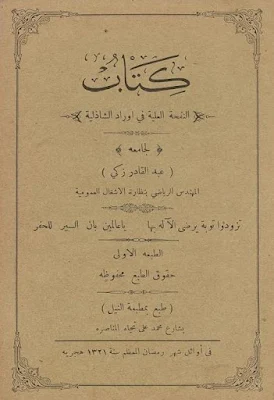 كِتَابُ
النفحة العلية في اوراد الشاذلية
لجامعه
( عبد القادر زكي )
المهندس الرياضي بنظارة الاشغال العمومية
تزودوا توبة يرضى الآله بها ياعالمين بان السير للحفر
الطبعه الاولى
حقوق الطبع محفوظه
( طبع بمطبعة النيل )
بشارع محمد على تجاه المناصره
في أوائل شهر رمضان المعظم سنة ١٣٢١ هجريه